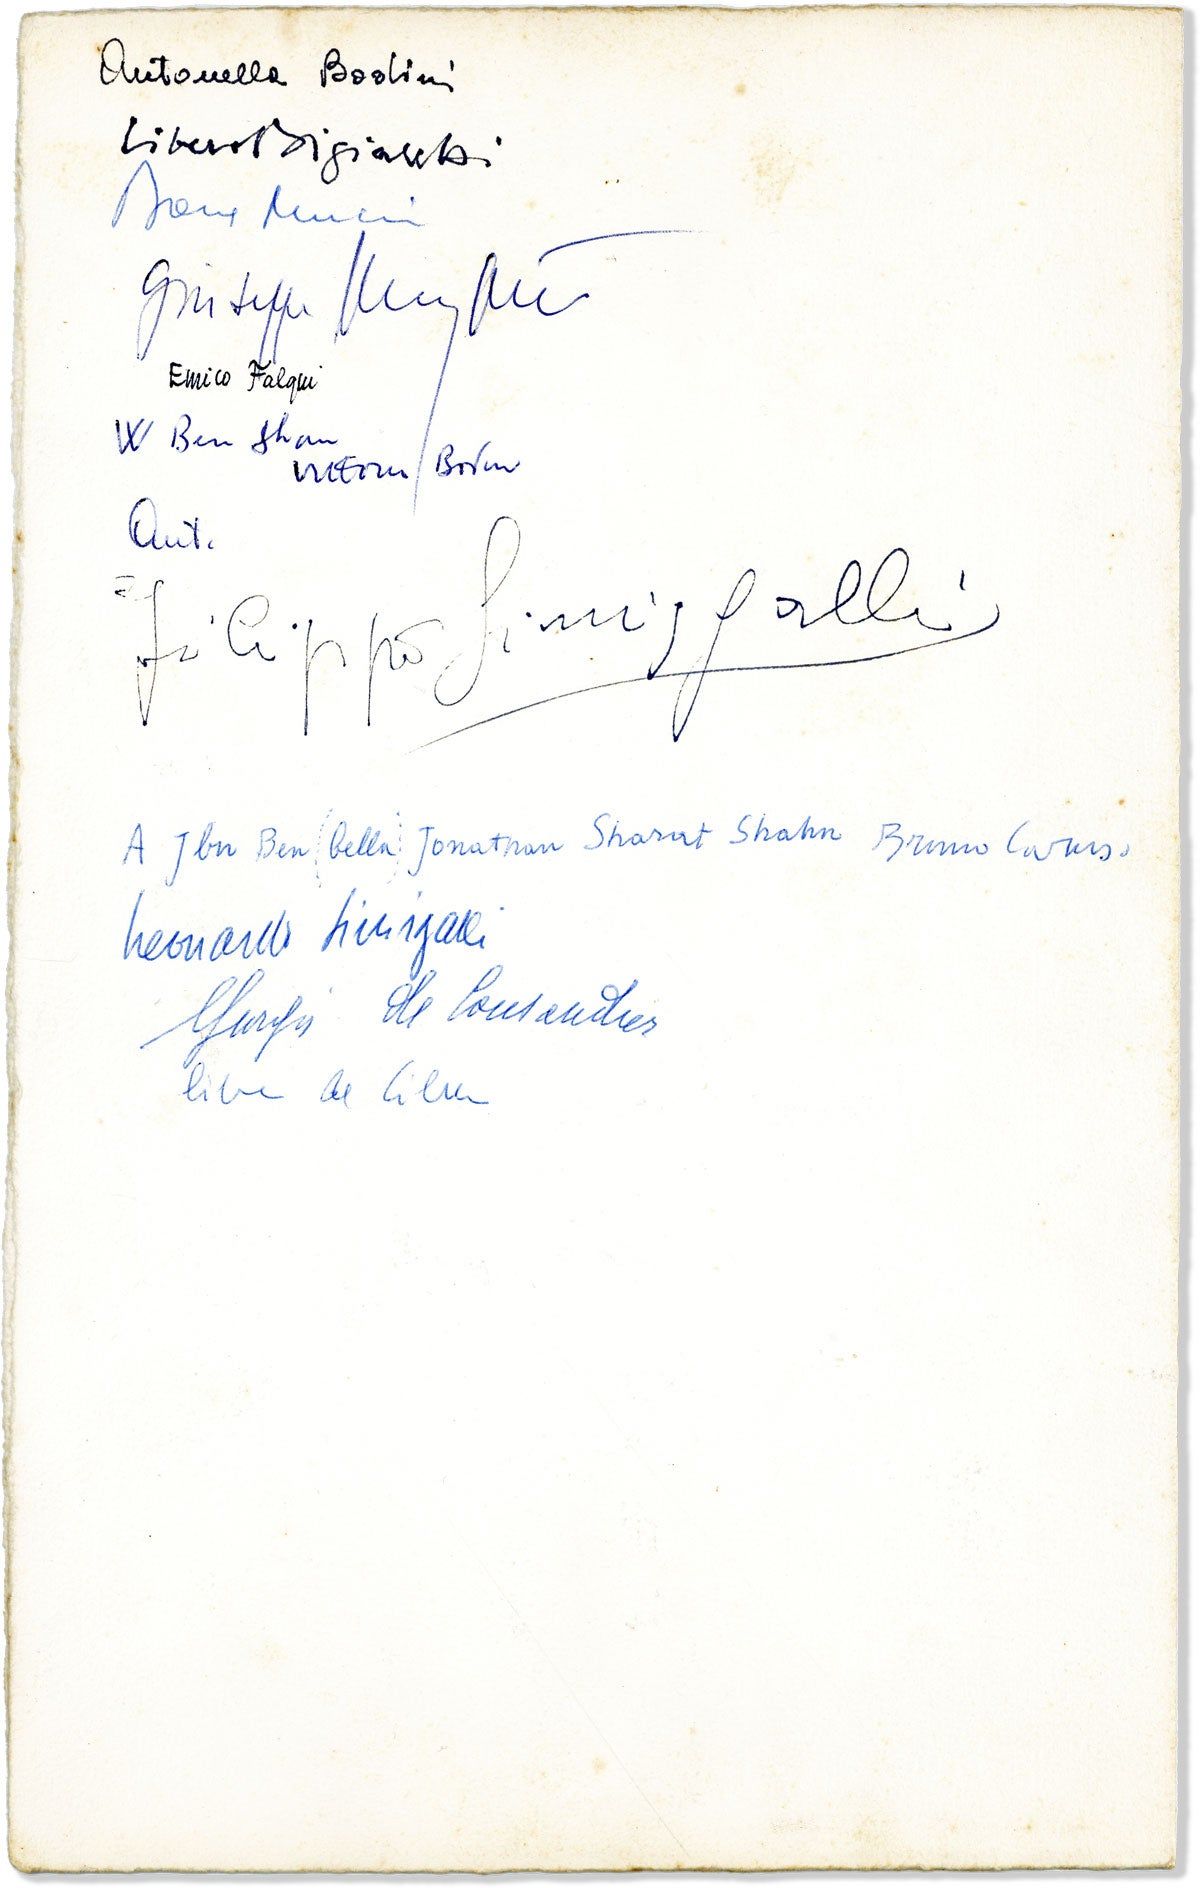 Antonella Bodini
Libero Bigiaretti
Giuseppe
Enrico Falqui
W Ben Shan
Vittorio Bodini
Ant.
Filippo Sinisgalli
A Jbn Ben (bella) Jonathan Sharat Shahn Bruno Caruso
Leonardo Sinisgalli
Giorgia de Cousandier
libero de libero